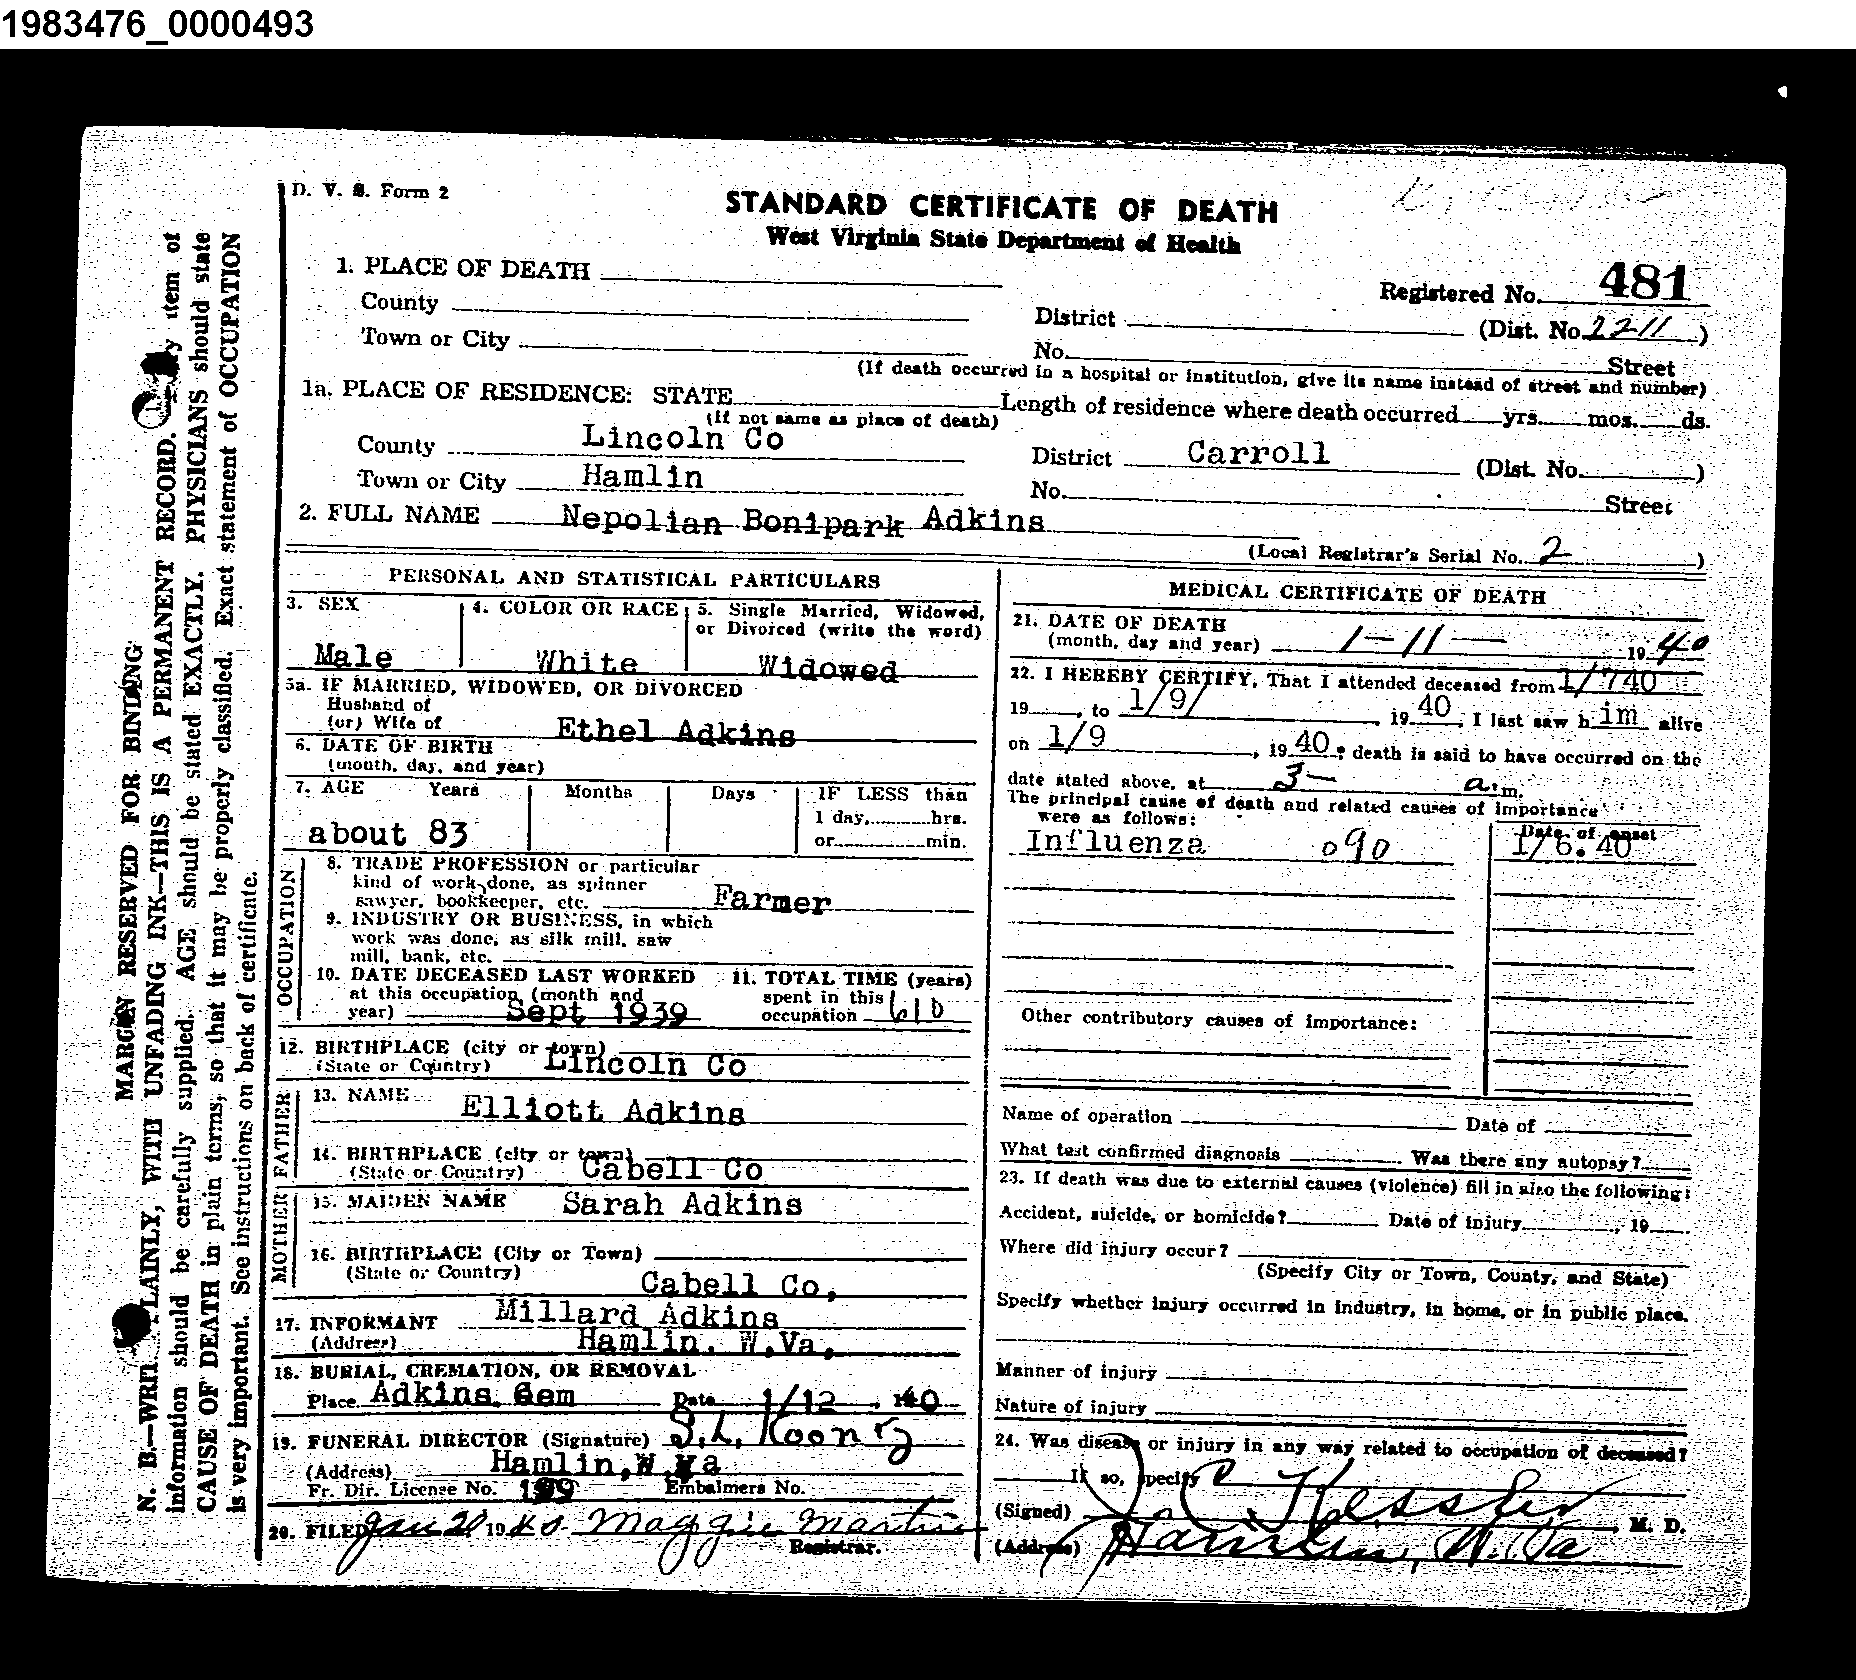 1983476_0000493
D. V. S. Form 2
STANDARD CERTIFICATE OF DEATH
West Virginia State Department of Health
1. PLACE OF DEATH
Registered No. 481
County
District (Dist. No. 2211)
Town or City
No. Street
(If death occurred in a hospital or institution, give its name instead of street and number)
1a. PLACE OF RESIDENCE: STATE Length of residence where death occurred yrs. mos. ds.
(If not same as place of death)
County Lincoln Co District Carroll (Dist. No. )
Town or City Hamlin No. Street
2. FULL NAME Nepolian Bonipark Adkins
(Local Registrar's Serial No. 2 )
PERSONAL AND STATISTICAL PARTICULARS
3. SEX 4. COLOR OR RACE 5. Single Married, Widowed,
or Divorced (write the word)
Male White Widowed
5a. IF MARRIED, WIDOWED, OR DIVORCED
Husband of
(or) Wife of Ethel Adkins
6. DATE OF BIRTH
(month, day, and year)
7. AGE Years Months Days IF LESS than
1 day, hrs.
about 83 or min.
OCCUPATION
8. TRADE PROFESSION or particular
kind of work done, as spinner
sawyer, bookkeeper, etc. Farmer
9. INDUSTRY OR BUSINESS, in which
work was done, as silk mill, saw
mill, bank, etc.
10. DATE DECEASED LAST WORKED 11. TOTAL TIME (years)
at this occupation (month and spent in this
year) Sept 1939 occupation
12. BIRTHPLACE (city or town)
(State or Country) Lincoln Co
FATHER
13. NAME Elliott Adkins
14. BIRTHPLACE (city or town)
(State or Country) Cabell Co
MOTHER
15. MAIDEN NAME Sarah Adkins
16. BIRTHPLACE (City or Town)
(State or Country)
Cabell Co,
17. INFORMANT Millard Adkins
(Address) Hamlin. W.Va,
18. BURIAL, CREMATION, OR REMOVAL
Place Adkins Cem Date 1/12, 1940
19. FUNERAL DIRECTOR (Signature) S.L. Koontz
(Address) Hamlin,W Va
Fr. Dir. License No. 199 Embalmers No.
20. FILED Jan 20 1940 Maggie Martin
Registrar.
MEDICAL CERTIFICATE OF DEATH
21. DATE OF DEATH
(month, day and year) 1-11- 1940
22. I HEREBY CERTIFY, That I attended deceased from 1/740
19 , to 1/9/ , 1940, I last saw him alive
on 1/9 , 1940; death is said to have occurred on the
date stated above, at 3- a.m.
The principal cause of death and related causes of importance
were as follows: Date of onset
Influenza 090 1/6.40
Other contributory causes of importance:
Name of operation Date of
What test confirmed diagnosis Was there any autopsy?
23. If death was due to external causes (violence) fill in also the following:
Accident, suicide, or homicide? Date of injury , 19
Where did injury occur?
(Specify City or Town, County, and State)
Specify whether injury occurred in industry, in home, or in public place.
Manner of injury
Nature of injury
24. Was disease or injury in any way related to occupation of deceased?
If so, specify
(Signed) Kessler, M. D.
(Address) Hamlin, W.Va
MARGIN RESERVED FOR BINDING
N. B.—WRITE PLAINLY, WITH UNFADING INK—THIS IS A PERMANENT RECORD. Every item of
information should be carefully supplied. AGE should be stated EXACTLY. PHYSICIANS should state
CAUSE OF DEATH in plain terms, so that it may be properly classified. Exact statement of OCCUPATION
is very important. See instructions on back of certificate.